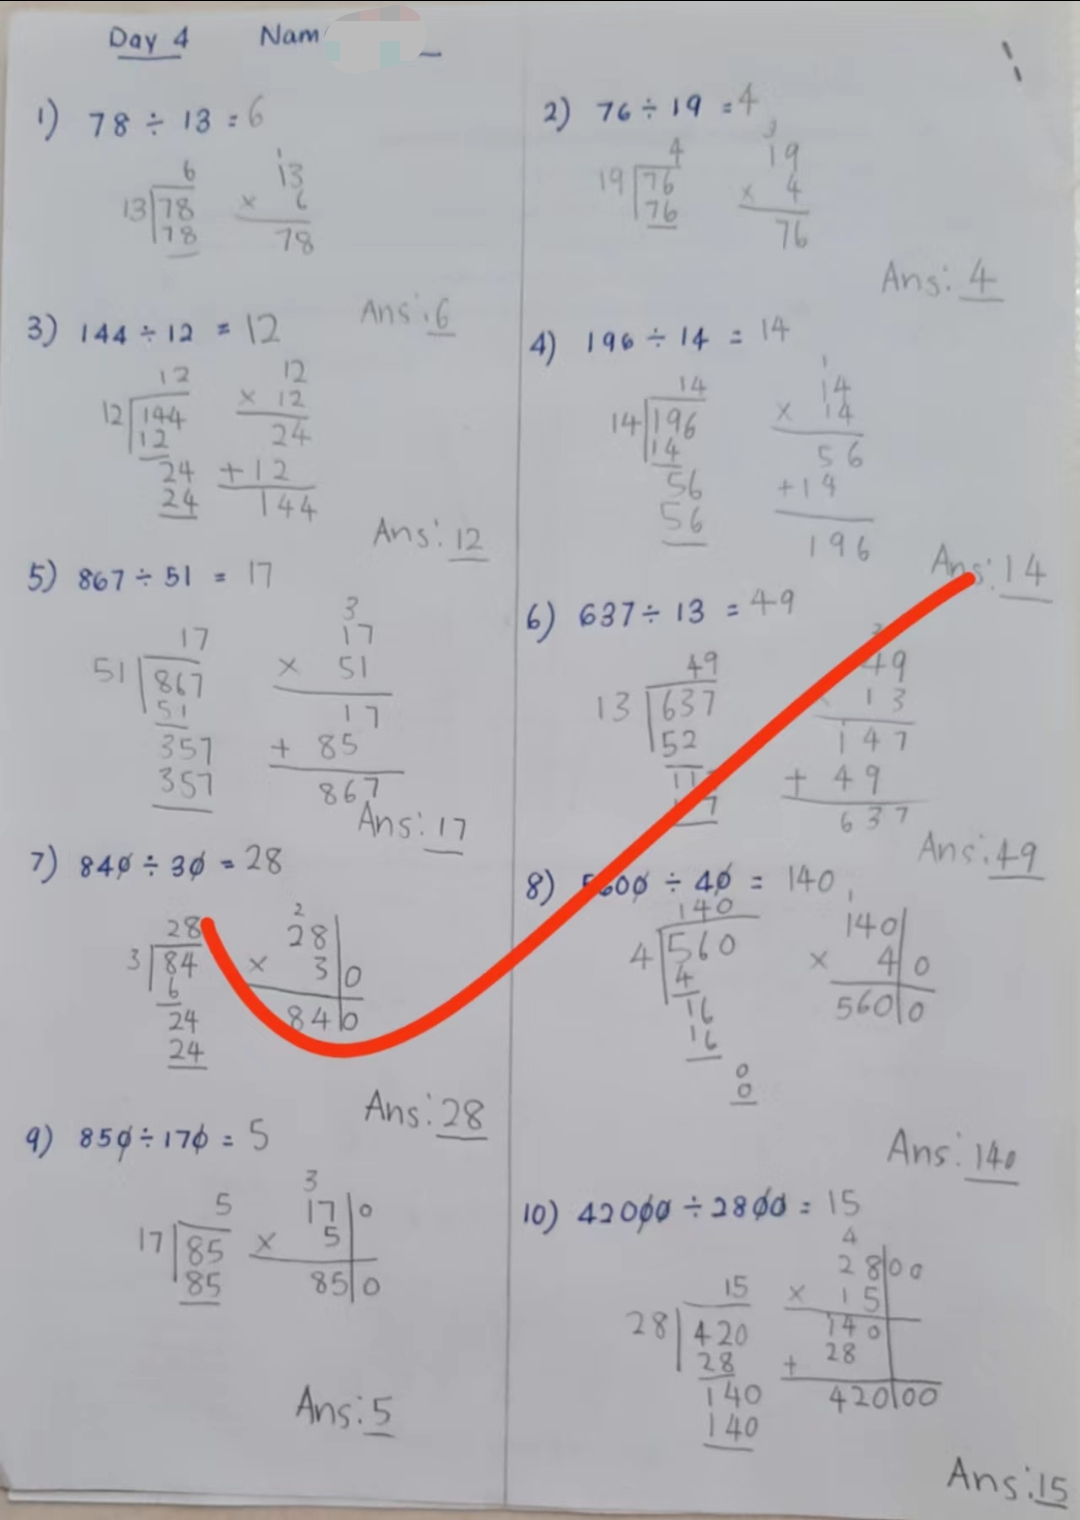 Day 4 Nam
1) 78 ÷ 13 = 6
6
13 78
78
1
13
× 6
78
Ans: 6
2) 76 ÷ 19 = 4
4
19 76
76
3
19
× 4
76
Ans: 4
3) 144 ÷ 12 = 12
12
12 144
12
24
24
12
× 12
24
+12
144
Ans: 12
4) 196 ÷ 14 = 14
14
14 196
14
56
56
1
14
× 14
56
+14
196
Ans: 14
5) 867 ÷ 51 = 17
17
51 867
51
357
357
3
17
× 51
17
+ 85
867
Ans: 17
6) 637 ÷ 13 = 49
49
13 637
52
49
13
147
+ 49
637
Ans: 49
7) 840 ÷ 30 = 28
28
3 84
6
24
24
2
28
× 3 0
84 0
Ans: 28
8) 5600 ÷ 40 = 140
140
4 560
4
16
16
0
0
1
140
× 4 0
560 0
Ans: 140
9) 850 ÷ 170 = 5
5
17 85
85
3
17 0
× 5
85 0
Ans: 5
10) 42000 ÷ 2800 = 15
15
28 420
28
140
140
4
28 00
× 15
140
+ 28
420 00
Ans: 15